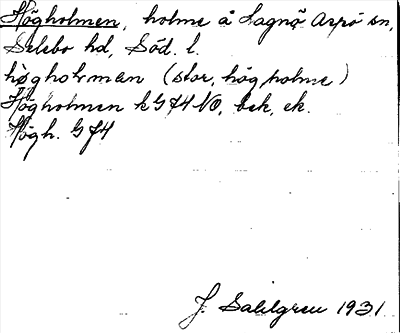 Högholmen, holme å Lagnö Arpö sn,
Selebo hd, Söd. l.
høgholmen (stor, hög holme)
Högholmen k G 74 NO, bek, ek.
Högh. G 74
J. Sahlgren 1931